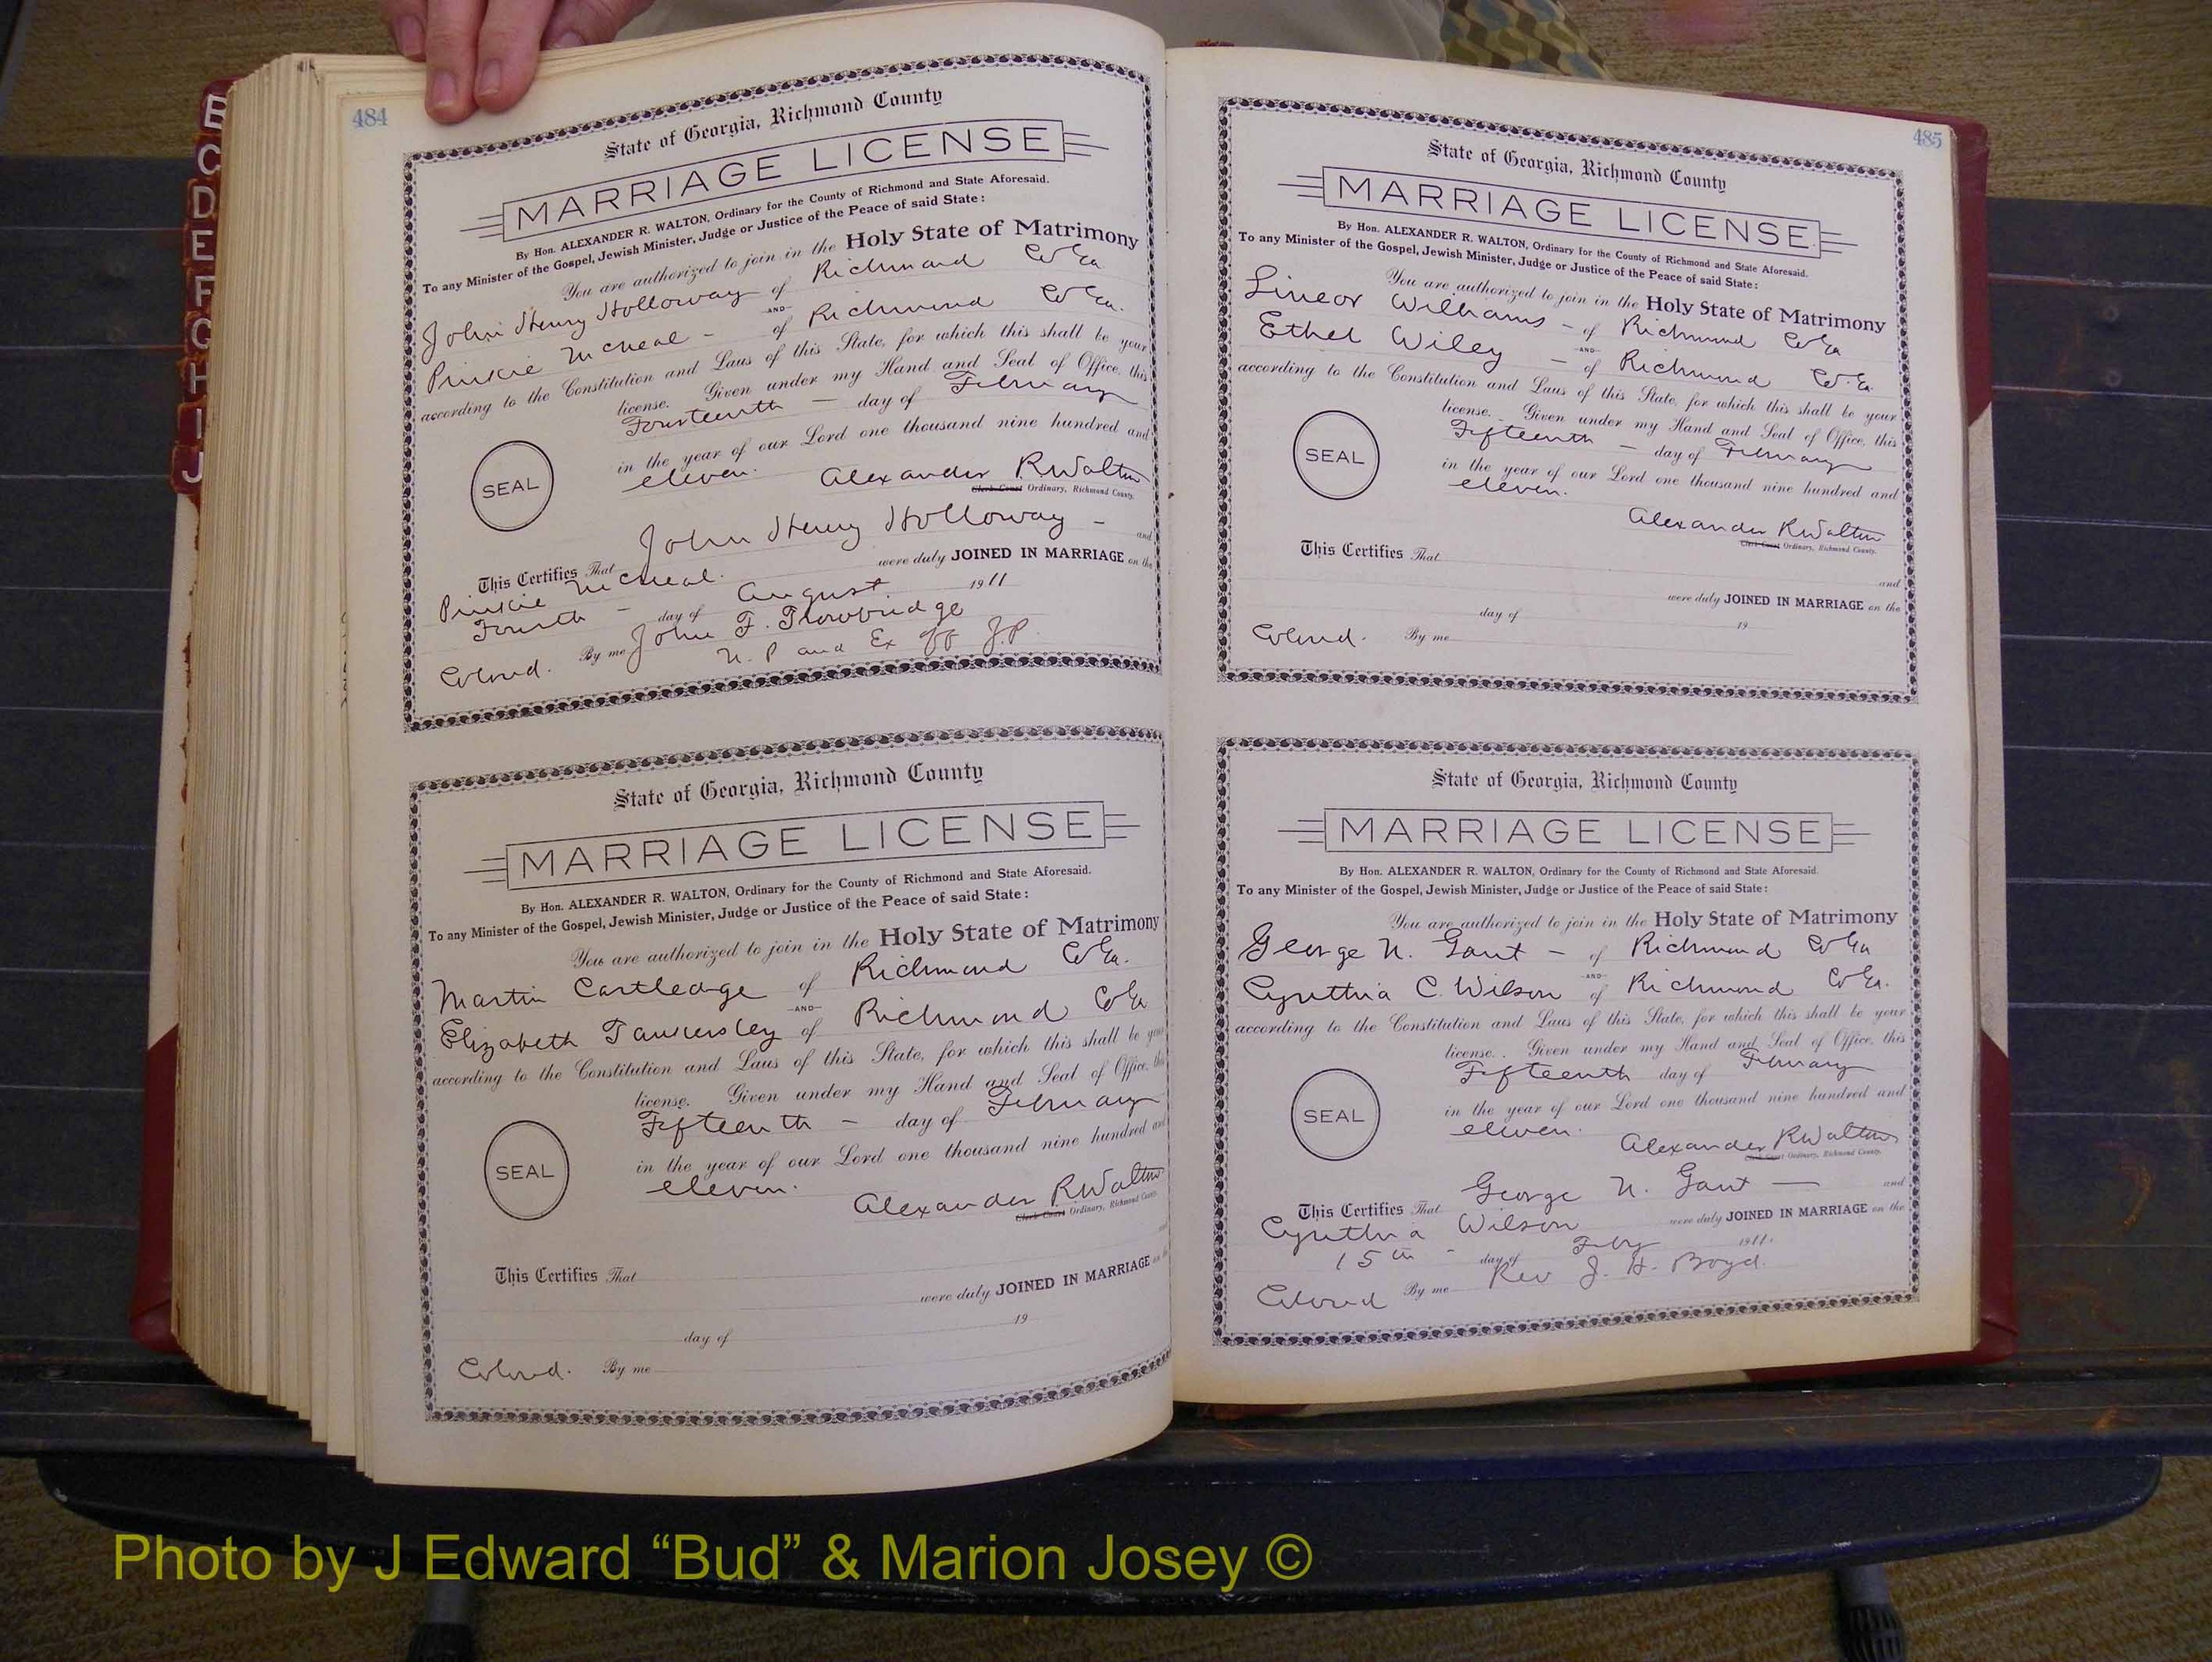 B
C
D
E
F
G
H
I
J
484
State of Georgia, Richmond County
MARRIAGE LICENSE
By Hon. ALEXANDER R. WALTON, Ordinary for the County of Richmond and State Aforesaid.
To any Minister of the Gospel, Jewish Minister, Judge or Justice of the Peace of said State:
You are authorized to join in the Holy State of Matrimony
John Henry Holloway of Richmond Co Ga
AND
Pinkie McNeal - of Richmond Co Ga.
according to the Constitution and Laws of this State, for which this shall be your
license. Given under my Hand and Seal of Office, this
Fourteenth - day of February
in the year of our Lord one thousand nine hundred and
eleven.
SEAL
Alexander R Walton
Clerk Court Ordinary, Richmond County.
This Certifies That John Henry Holloway - and
Pinkie McNeal. were duly JOINED IN MARRIAGE on the
Fourth - day of August 1911
By me John F. Trowbridge
Colored. N. P and Ex off J.P.
State of Georgia, Richmond County
MARRIAGE LICENSE
By Hon. ALEXANDER R. WALTON, Ordinary for the County of Richmond and State Aforesaid.
To any Minister of the Gospel, Jewish Minister, Judge or Justice of the Peace of said State:
You are authorized to join in the Holy State of Matrimony
Martin Cartledge of Richmond Co Ga.
AND
Elizabeth Tankersley of Richmond Co Ga
according to the Constitution and Laws of this State, for which this shall be your
license. Given under my Hand and Seal of Office, this
Fifteenth - day of February
in the year of our Lord one thousand nine hundred and
eleven.
SEAL
Alexander R Walton
Clerk Court Ordinary, Richmond County.
This Certifies That
were duly JOINED IN MARRIAGE on
day of 19
Colored. By me
485
State of Georgia, Richmond County
MARRIAGE LICENSE
By Hon. ALEXANDER R. WALTON, Ordinary for the County of Richmond and State Aforesaid.
To any Minister of the Gospel, Jewish Minister, Judge or Justice of the Peace of said State:
You are authorized to join in the Holy State of Matrimony
Lineor Williams - of Richmond Co Ga
AND
Ethel Wiley - of Richmond Co. Ga.
according to the Constitution and Laws of this State, for which this shall be your
license. Given under my Hand and Seal of Office, this
Fifteenth - day of February
in the year of our Lord one thousand nine hundred and
eleven.
SEAL
Alexander R Walton
Clerk Court Ordinary, Richmond County.
This Certifies That
and
were duly JOINED IN MARRIAGE on the
day of 19
Colored. By me
State of Georgia, Richmond County
MARRIAGE LICENSE
By Hon. ALEXANDER R. WALTON, Ordinary for the County of Richmond and State Aforesaid.
To any Minister of the Gospel, Jewish Minister, Judge or Justice of the Peace of said State:
You are authorized to join in the Holy State of Matrimony
George N. Gant - of Richmond Co Ga
AND
Cynthia C. Wilson of Richmond Co Ga.
according to the Constitution and Laws of this State, for which this shall be your
license. Given under my Hand and Seal of Office, this
Fifteenth day of February
in the year of our Lord one thousand nine hundred and
eleven.
SEAL
Alexander R Walton
Clerk Court Ordinary, Richmond County.
This Certifies That George N. Gant - and
Cynthia Wilson were duly JOINED IN MARRIAGE on the
15th - day of Feby 1911.
Colored By me Rev J. H. Boyd.
Photo by J Edward “Bud” & Marion Josey ©